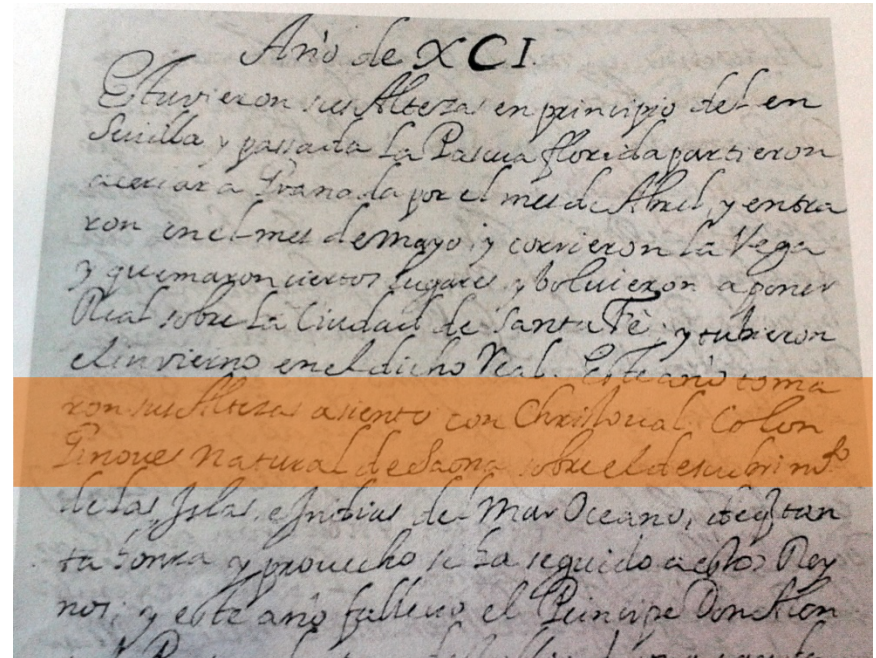 Año de XCI.
Estuvieron sus Altezas en principio del en
Seuilla y passada la Pascua florida partieron
acercar a Granada por el mes de Abril, y entra
ron en el mes de Mayo, y corrieron la Vega
y quemaron ciertos lugares, y boluieron a poner
Real sobre la Ciudad de Santa Fè y tubieron
el invierno en el dicho Real. Este año toma
ron sus Altezas asiento con Christoual Colon
Ginoves natural de Saona sobre el descubrimto
de las Islas, e Indias del Mar Oceano, de q tan
ta honra y prouecho se ha seguido a estos Rey
nos, y este año fallecio el Principe Don Alon